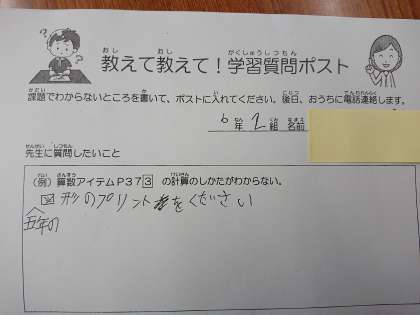 教えて教えて！学習質問ポスト
課題でわからないところを書いて、ポストに入れてください。後日、おうちに電話連絡します。
6年2組 名前
先生に質問したいこと
(例) 算数アイテムP37③ の計算のしかたがわからない。
図形のプリントをください
五年の